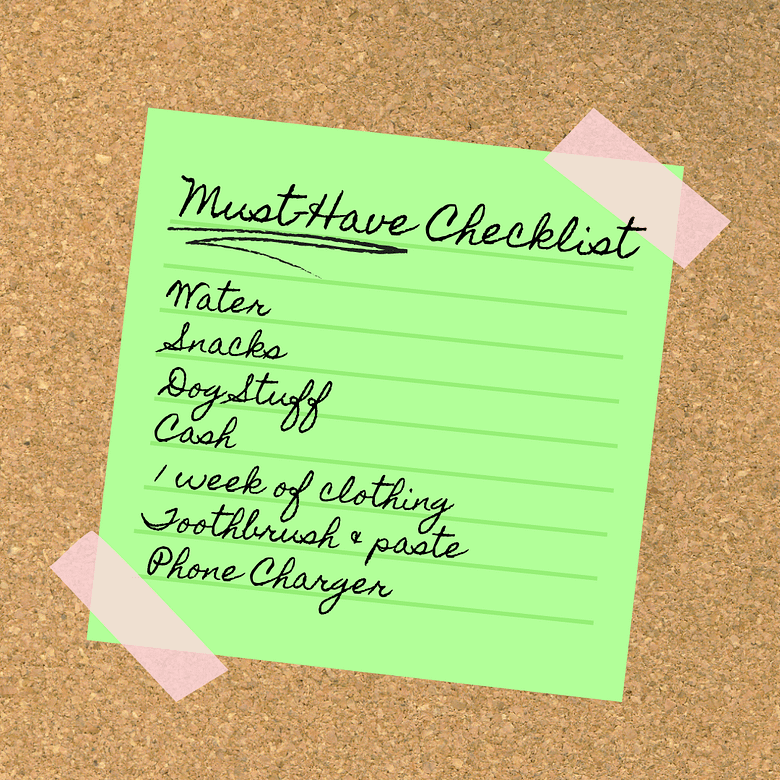 Must-Have Checklist
Water
Snacks
Dog Stuff
Cash
1 week of clothing
Toothbrush & paste
Phone Charger